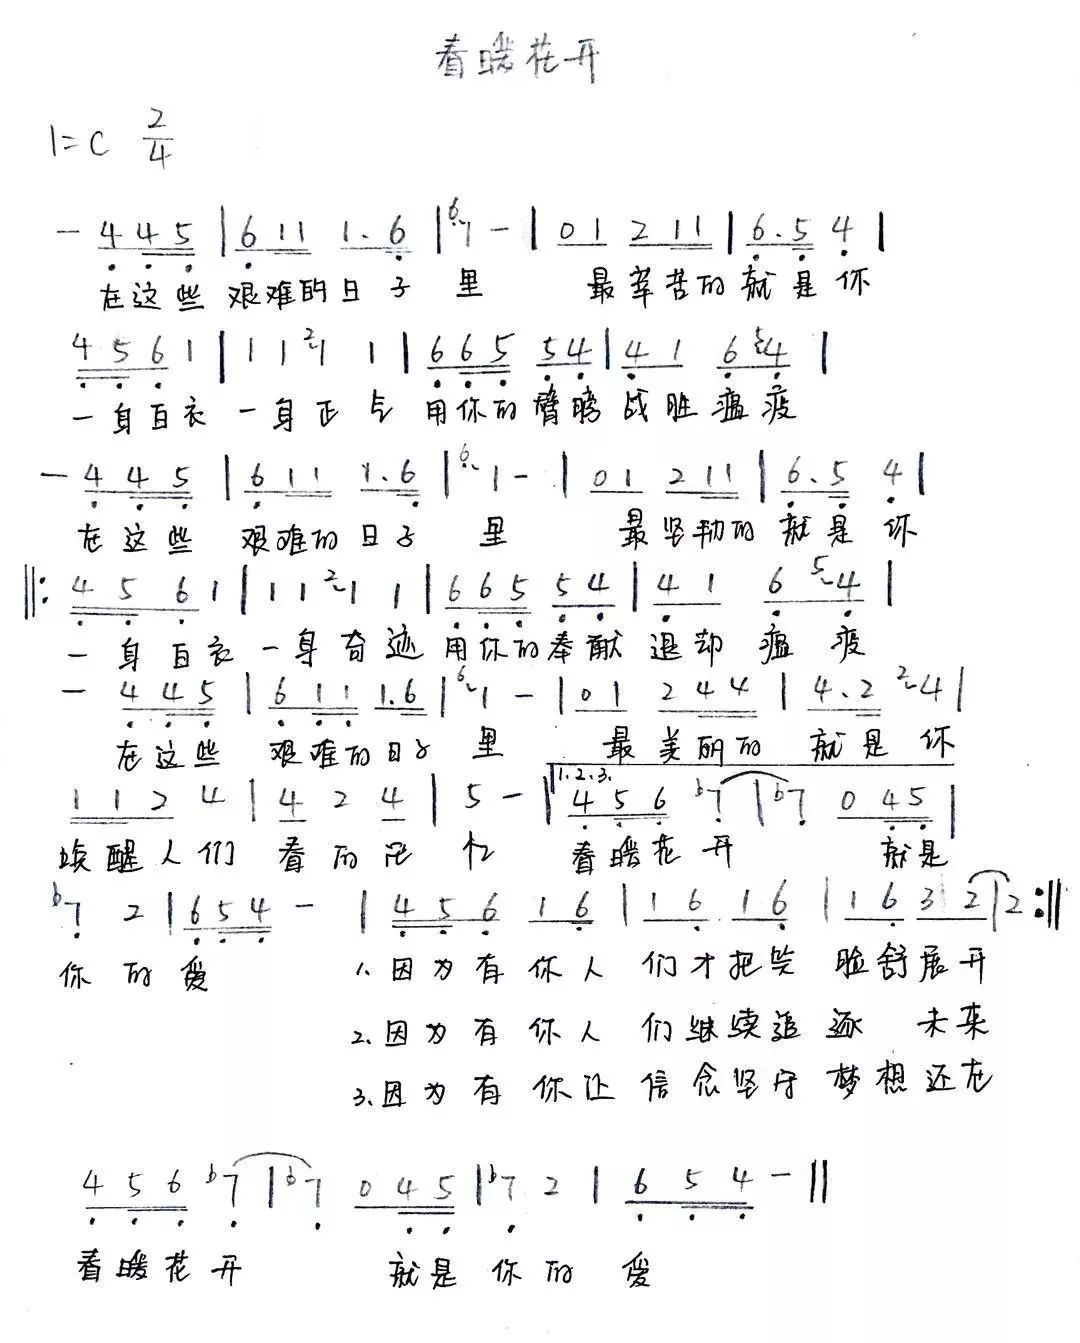 春暖花开
1=C 2/4
- 4 4 5 | 6 1 1 1. 6 | 6 1 - | 0 1 2 1 1 | 6. 5 4 |
在这些 艰难的日子 里 最辛苦的就是你
4 5 6 1 | 1 1 2 1 1 | 6 6 5 5 4 | 4 1 6 5 4 |
一身白衣 一身正气 用你的臂膀战胜瘟疫
- 4 4 5 | 6 1 1 1. 6 | 6 1 - | 0 1 2 1 1 | 6. 5 4 |
在这些 艰难的日子 里 最坚韧的就是你
||: 4 5 6 1 | 1 1 2 1 1 | 6 6 5 5 4 | 4 1 6 5 4 |
一身白衣一身奇迹用你的奉献退却瘟疫
- 4 4 5 | 6 1 1 1. 6 | 6 1 - | 0 1 2 4 4 | 4. 2 2 4 |
在这些 艰难的日子 里 最美丽的就是你
1 1 2 4 | 4 2 4 | 5 - | 1.2.3. 4 5 6 b7 | b7 0 4 5 |
唤醒人们 春的 春暖花开 就是
b7 2 | 6 5 4 - | 4 5 6 1 6 | 1 6 1 6 | 1 6 3 2 | 2 :||
你的爱 1.因为有你人们才把笑脸舒展开
2.因为有你人们继续追逐未来
3.因为有你让信念坚守梦想还在
4 5 6 b7 | b7 0 4 5 | b7 2 | 6 5 4 - ||
春暖花开 就是你的爱